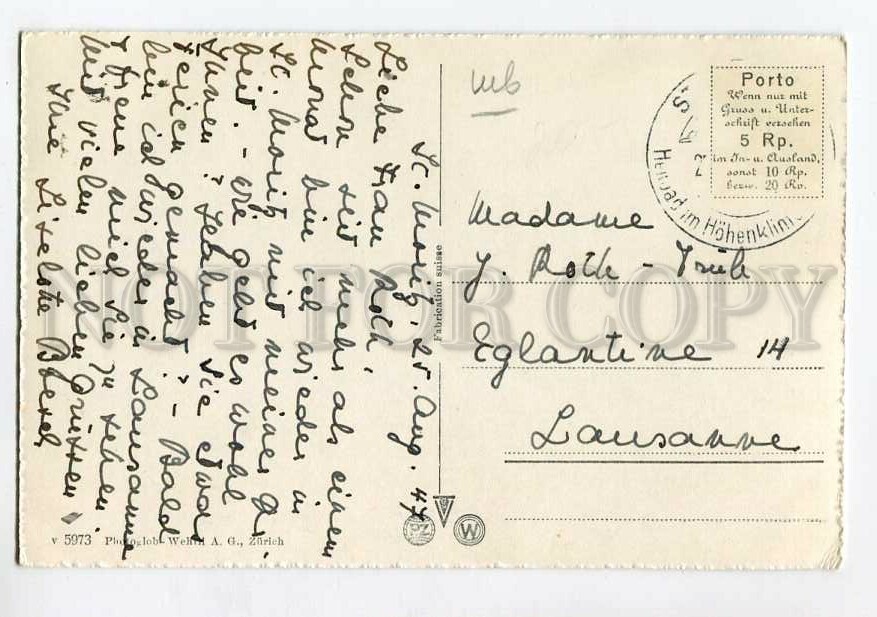 St. Moritz, 25. Aug. 47
Liebe Frau Roth,
Schon seit mehr als einem
Monat bin ich wieder in
St. Moritz mit meiner
Wie geht es wohl
Ihnen? Haben Sie etwas
Ferien gemacht? - Bald
bin ich wieder in Lausanne
& freue mich Sie zu sehen.
Mit vielen lieben Grüssen
Ihre Liselotte
mb
Porto
Wenn nur mit
Gruss u. Unter-
schrift versehen
5 Rp.
im In- u. Ausland,
sonst 10 Rp.
bezw. 20 Rp.
Heilbad im Höhenklima
Madame
J. Roth - Trüb
Eglantine 14
Lausanne
Fabrication suisse
PZ
W
v 5973 Photoglob-Wehrli A. G., Zürich
NOT FOR COPY